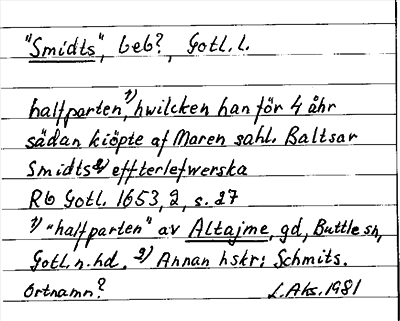 "Smidts", beb?, Gotl. l.
halfparten,¹⁾ hwilcken han för 4 åhr
sädan kiöpte af Maren sahl. Baltsar
Smidts²⁾ effterlefwerska
Rb Gotl. 1653, 2, s. 27
¹⁾ "halfparten" av Altajme, gd, Buttle sn,
Gotl. n. hd. ²⁾ Annan hskr: Schmits.
Ortnamn? L. Aks. 1981